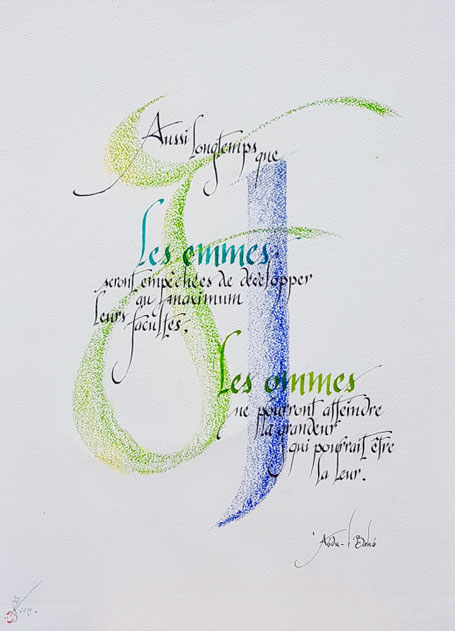 Aussi Longtemps
que
Les emmes
seront empêchées de développer
au maximum
leurs
facultés,
Les ommes
ne pourront atteindre
la grandeur
qui pourrait être
la leur.
'Abdu-l Bahá